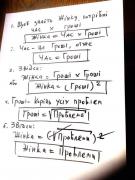 1. Щоб знайть Жінку, потрібні
Час і Гроші
Жінка = Час x Гроші
2. Час – це Гроші, отже
Час = Гроші
3. Звідси:
Жінка = Гроші x Гроші
або
Жінка = (Гроші)²
4. Гроші – корінь усіх проблем
Гроші = √Проблеми
5. Звідси:
Жінка = (√Проблеми)²
Жінка = Проблеми